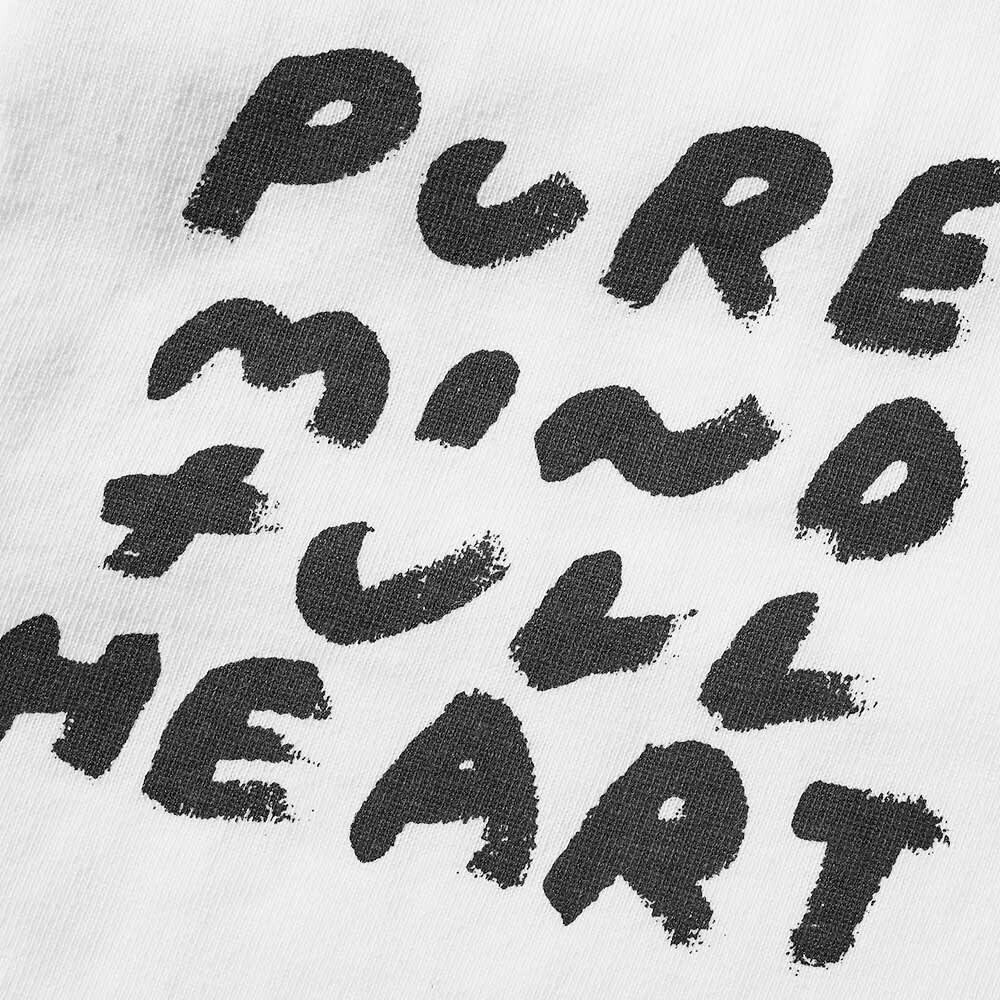 PURE
MIND
+ULL
HEART